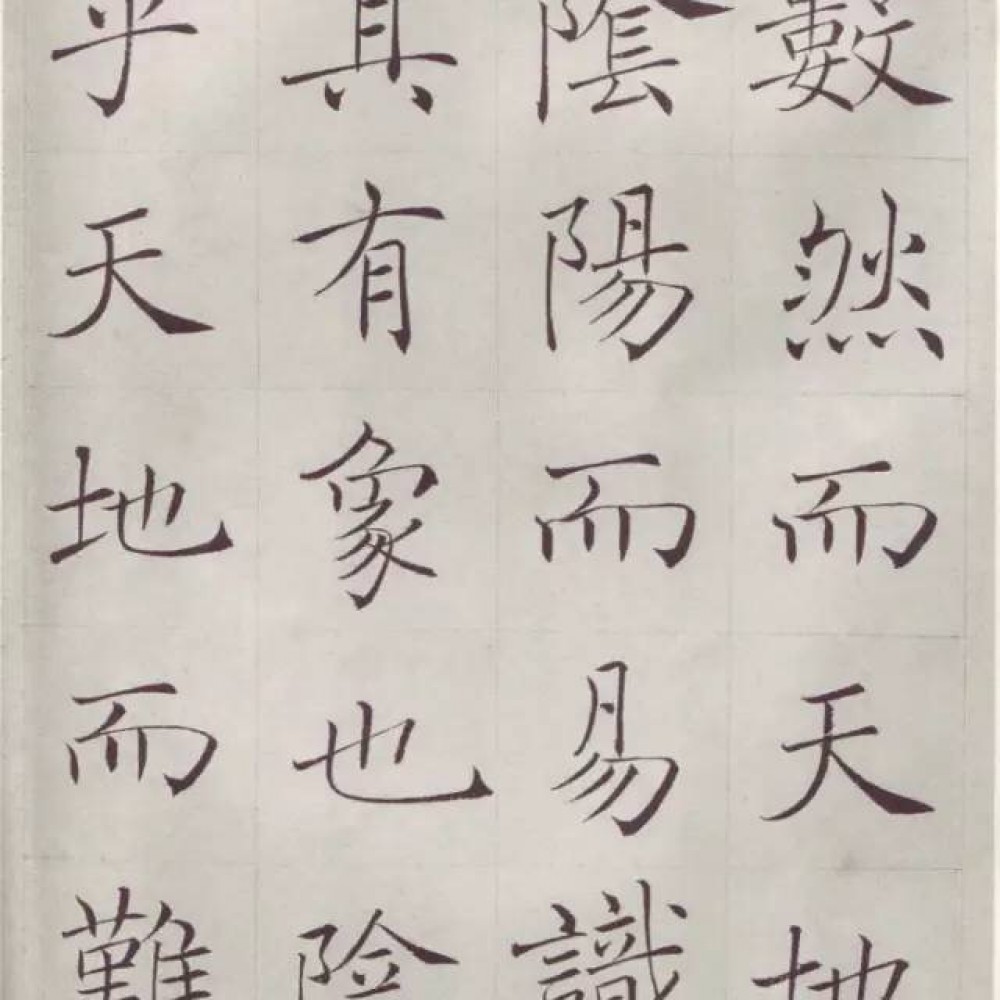 數然而天地
陰陽而易識
其有象也陰
乎天地而難